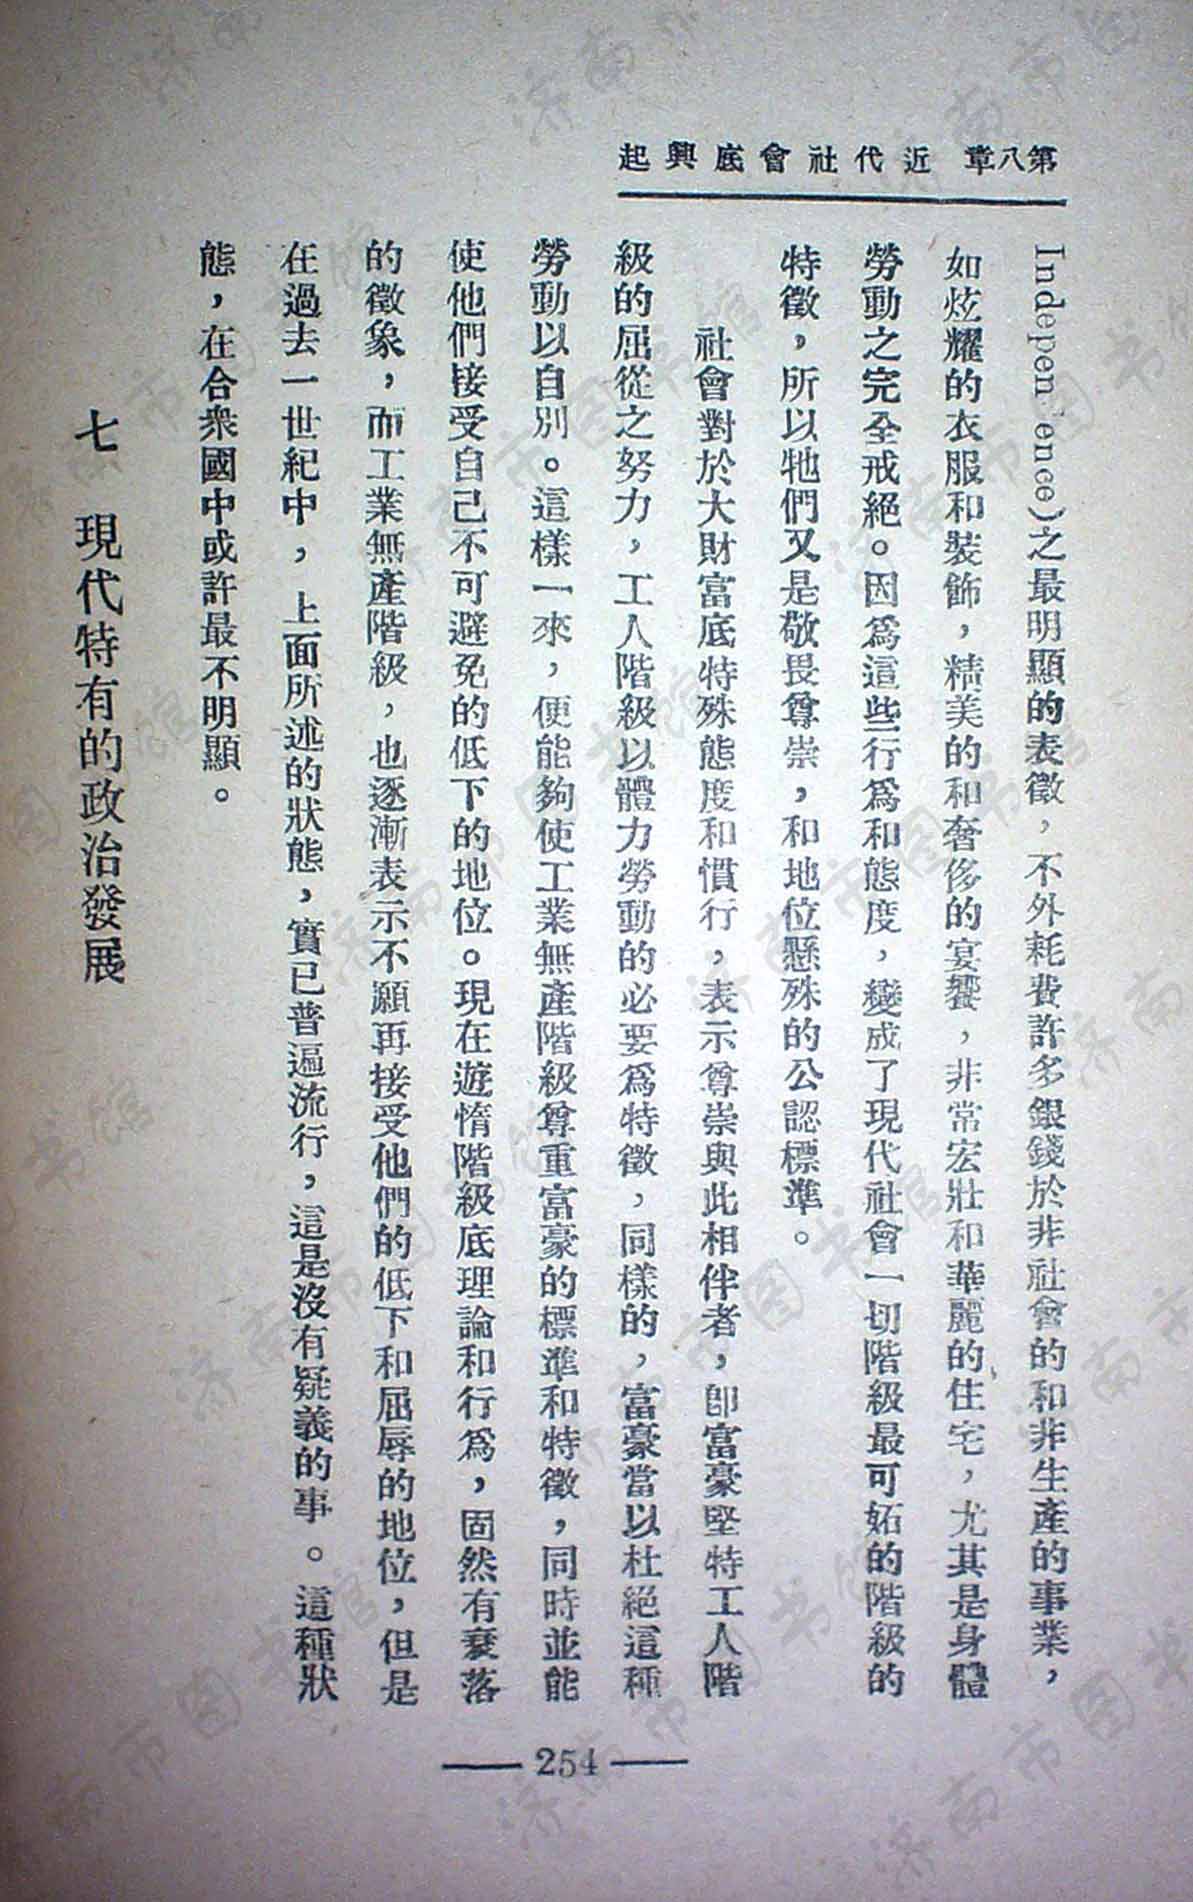 第八章 近代社會底興起
Independence)之最明顯的表徵，不外耗費許多銀錢於非社會的和非生產的事業，
如炫耀的衣服和裝飾，精美的和奢侈的宴饗，非常宏壯和華麗的住宅，尤其是身體
勞動之完全戒絕。因爲這些行爲和態度，變成了現代社會一切階級最可妬的階級的
特徵，所以牠們又是敬畏尊崇，和地位懸殊的公認標準。
社會對於大財富底特殊態度和慣行，表示尊崇與此相伴者，卽富豪堅特工人階
級的屈從之努力，工人階級以體力勞動的必要爲特徵，同樣的，富豪當以杜絕這種
勞動以自別。這樣一來，便能夠使工業無產階級尊重富豪的標準和特徵，同時並能
使他們接受自己不可避免的低下的地位。現在遊惰階級底理論和行爲，固然有衰落
的徵象，而工業無產階級，也逐漸表示不願再接受他們的低下和屈辱的地位，但是
在過去一世紀中，上面所述的狀態，實已普遍流行，這是沒有疑義的事。這種狀
態，在合衆國中或許最不明顯。
七 現代特有的政治發展
254
济南市图书馆